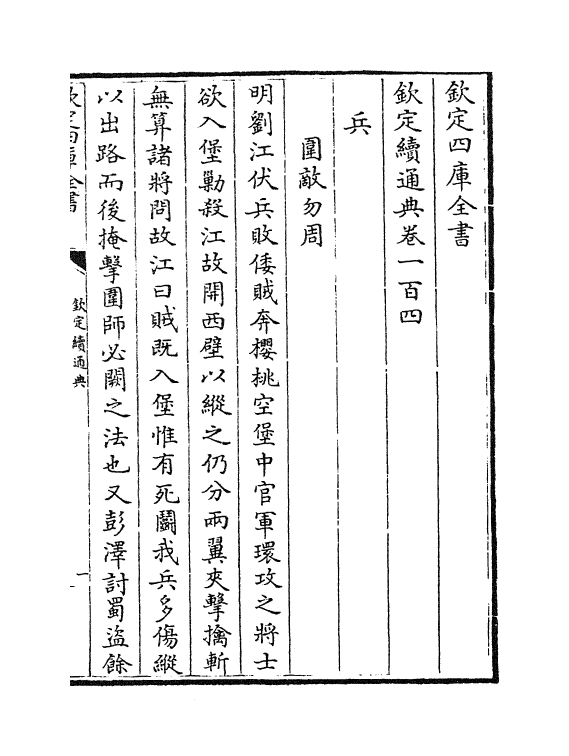 欽定四庫全書
欽定續通典卷一百四
兵
圍敵勿周
明劉江伏兵敗倭賊奔櫻桃空堡中官軍環攻之將士
欲入堡勦殺江故開西壁以縱之仍分兩翼夾擊擒斬
無算諸將問故江曰賊既入堡惟有死鬬我兵多傷縱
以出路而後掩擊圍師必闕之法也又彭澤討蜀盜餘
欽定四庫全書
欽定續通典
一